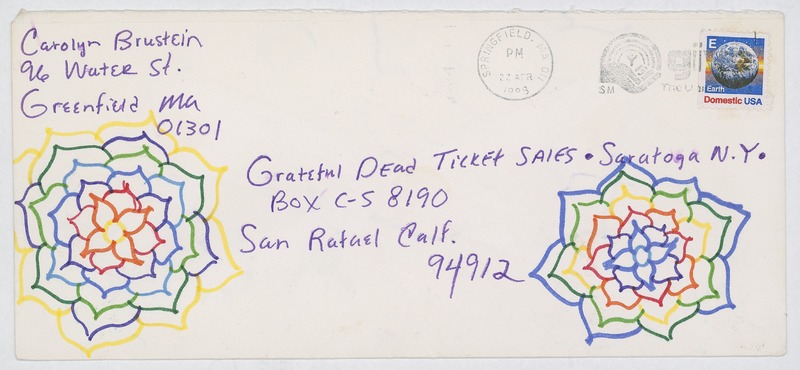 Carolyn Brustein
96 Water St.
Greenfield Ma
01301
SPRINGFIELD, MA
PM
22 APR
E
Earth
Domestic USA
Grateful Dead Ticket Sales • Saratoga N.Y.
Box C-S 8190
San Rafael Calf.
94912